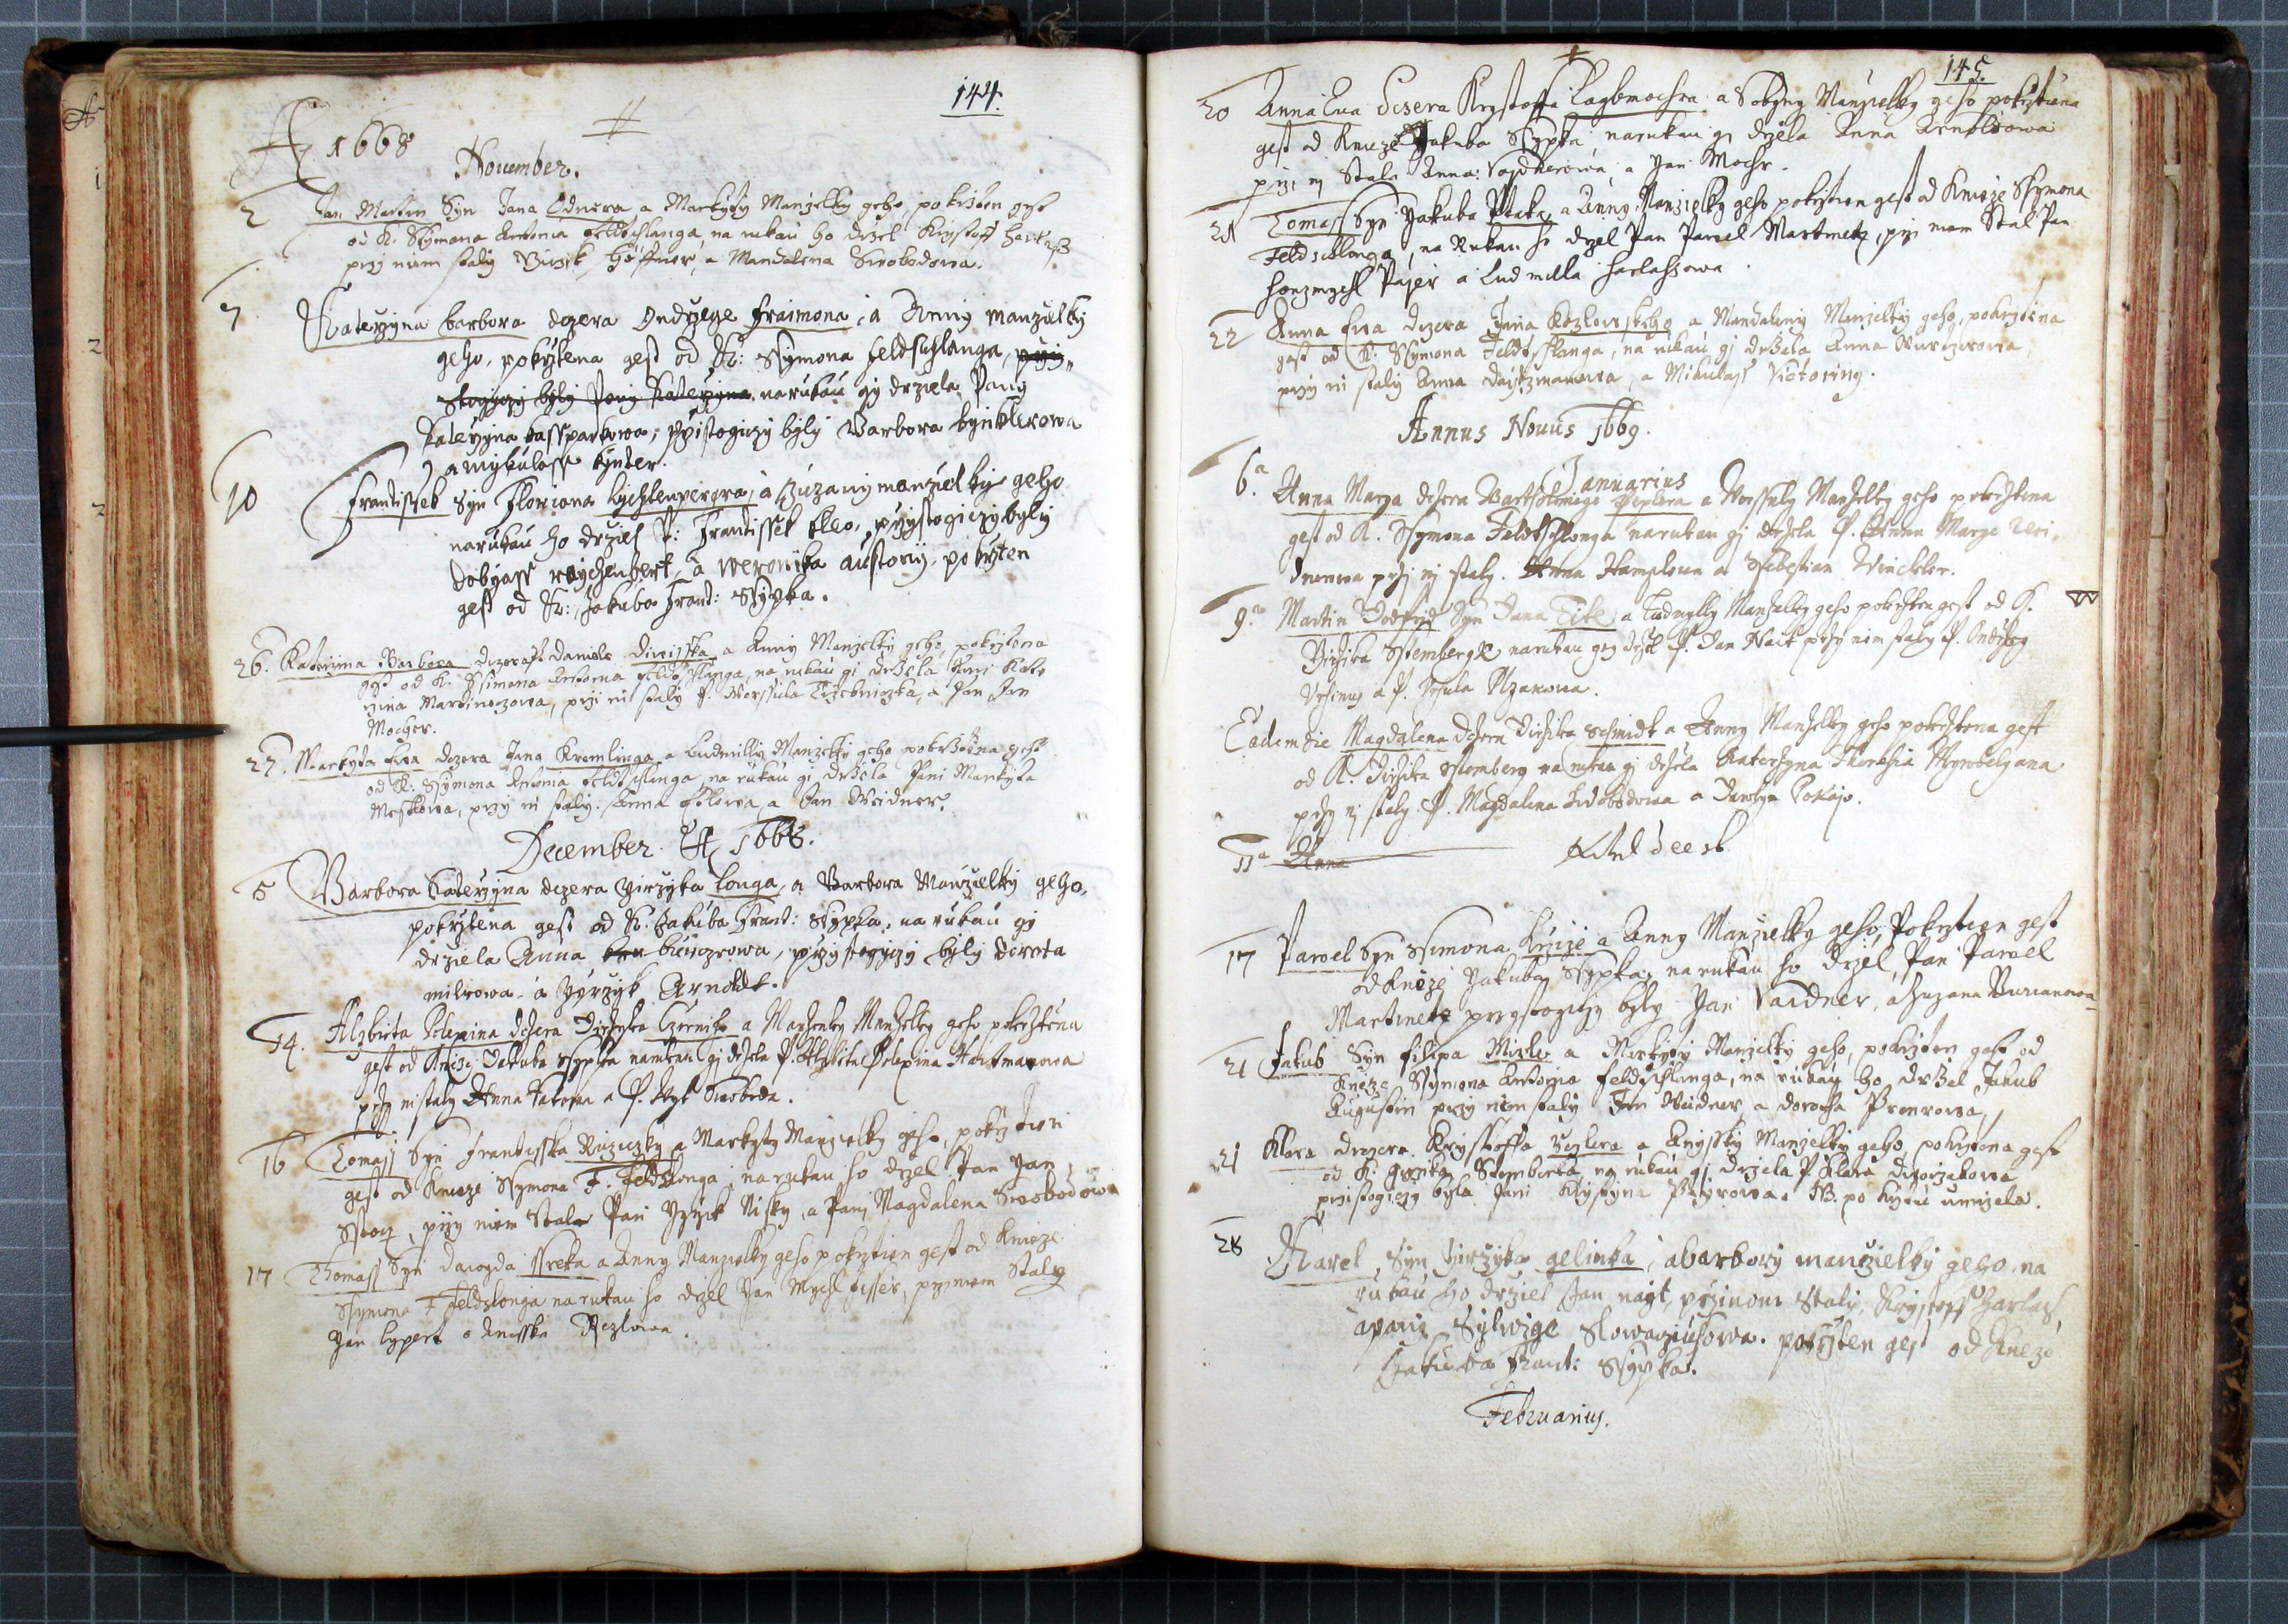 144.
A 1668
November.
2 Jan Martin Syn Jana Ednera a Markyty Manzelky geho, pokrzten gest
od K. Ssymona Antonia Feldtschlanga na rukau ho drzel Krystoff Harlass
przy niem staly Girzik Höffner, a Mandalena Swobodowa.
7 Katerzyna barbora dczera Ondrzege fraimona, a Anny manzielky
geho, pokrztena gest od K: Ssymona Feldschlanga, przy
stogiczy byly Pany Katerzyna narukau gy drziela Pany
Katerzyna kassparkowa, przistogiczy byly Barbora kynklerowa
a mykulass kynder.
10 Frantissek Syn Floriana lychtenperera, a zuzany manzielky geho
narukau ho drziel P: Frantissek kleo, przystogiczy byly
dobyass raychenbert, a weronyka austony, pokrzten
gest od K: Jakuba Frant: Ssypka.
26. Katerzina Barbora dczera P. Daniele diwisska a Anny Manzelky geho, pokrztena
gest od K. Ssimona Antonia Feldtschlanga, na rukau gi drzela Pani Kate
rzina Martineczowa, przi ni staly P. Worssula Trzebniczka, a Pan Jan
Mocher.
27. Markyta Ewa dczera Jana Kremlinga a Ludmilly Manzelky geho pokrztena gest
od K: Ssymona Antonia Feldtschlanga, na rukau gi drzela Pani Markyta
Messkowa, przy ni staly. Anna a Jan Weidner.
December. A 1668.
5 Barbora Katerzyna dczera Girzyka Longa, a Barbora Manzielky geho,
pokrztena gest od K. Jakuba Frant: Ssypka, na rukau gy
drziela Anna burczrowa, przystogiczy byly dorota
milrowa a Gyrzyk Arnoldt.
14. Alzbieta Polexina dczera Girzyka Czerniho a Marzenky Manzelky geho pokrztena
gest od Knieze Jakuba Ssypka narukau gi drzela P. Alzbieta Polexina Hartmanowa
przy ni staly Anna a P. Wyt Swoboda.
16 Tomass Syn Frantisska Ruziczky a Markyty Manzielky geho, pokrztien
gest od Knieze Ssymona F. Feldslonga, narukau ho drzel Pan Jan
przy niem Stala Pan Gyrzik Nisky, a Pani Magdalena Swobodowa
17 Thomass Syn Dawyda Ssreka a Anny Manzielky geho pokrztien gest od Knieze
Ssymona F Feldslonga narukau ho drzel Jan Mychl fisser, przi niem Staly
Jan lypert a Anesska Rezlowa.
145.
20 Anna Eva dczera Krystoffa Lagbmochra a Sobyny Manzielky geho pokrztiena
gest od Knieze Jakuba Ssypka, narukau gi drzela Anna Arnoltowa
przi ni Stala Anna Vaydnerowa, a Jan Mochr.
21 Tomass Syn Jakuba Ptaka, a Anny Manzielky geho pokrztien gest od Knieze Ssymona
Feldschlonga, na Rukau ho drzel Pan Pawel Martinetz, przi niem Stal Pan
Hanzmychl Pajer a Ludmilla Harlassowa.
22 Anna Ewa dczera Jana Kozlowskeho a Mandaleny Manzelky geho, pokrztena
gest od K. Ssymona Feldtschlanga, na rukau gi drzela Anna Wurczrowa,
przy ni staly Anna a Mikulass Victoring.
Annus Nouus 1669.
Januarius
6.a Anna Marya dczera Bartholomiege Peplera a Worssuly Manzelky geho pokrztena
gest od K. Ssymona Feldtschlonga narukau gi drzela P. Anna Marye Wei
dnerowa przi ni staly. Anna Hamplowa a Ssebestian Winckler.
9.a Martin Godfrid Syn Jana Eitle, a Ludmylly Manzelky geho pokrzten gest od K.
Girzika Sstembergk narukau gey drzel P. Jan Nait przy nim staly P. Ondrzeg
a P.
Eadem die Magdalena dczera Girzika Schmidt a Anny Manzelky geho pokrztena gest
od K. Girzika Sstemberg na rukau gi drzela Katerzyna Theresia
przy ni staly. P. Magdalena Swobodowa a
11a Anna
17 Pawel Syn Ssimona Krzize a Anny Manzielky geho, Pokrztien gest
od Knieze Jakuba Ssypka, na rukau ho drzel Pan Pawel
Martinetz przystogiczy byly Jan Vaidner, a Zuzana Burianowa
21 Jakub Syn filipa Mizle a Markyty Manzelky geho, pokrzten gest od
Knieze Ssymona Antonia Feldtschlanga, na rukau ho drzel Jakub
Augustin przy niem staly Jan Weidner a dorotha Prenrowa,
21 Klara dczera Krystoffa Voglera a Anyssky Manzelky geho, pokrztena gest
od K: Girzika Stemberka na rukau gi drzela P. Klara dworzakowa
przistogiczy byla Pani Krystyna Peyrowa. NB. po krztu umrzela.
28 Karel, Syn Girzyka gelinka, a barbory manzielky geho na
rukau ho drziel Jan nagt, przi nom Staly, Krystoff Harlass,
a pany Sylwige Slowaczusowa. pokrzten gest od Kneze
Jakuba Frant: Ssypka.
Februarius.